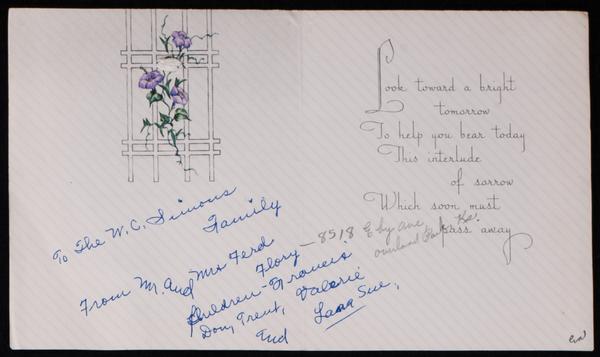 Look toward a bright
tomorrow
To help you bear today
This interlude
of sorrow
Which soon must
pass away
To The W.C. Simons
Family
From Mr. And Mrs Ferd
Flory - 8518 by ave
overland Park Ks.
Children - Francis
Don, Trent, Valerie
Sue,